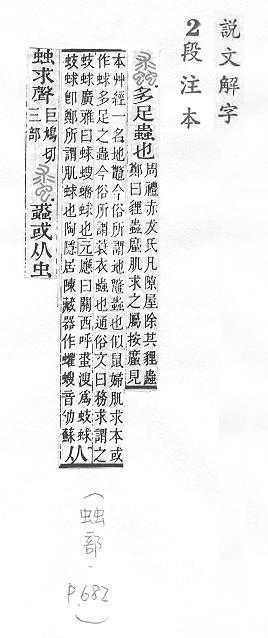 説文解字
2段注本
多足蟲也
周禮赤犮氏凡隙屋除其貍蟲
鄭曰貍蟲䗪肌求之屬按䗪見
本艸經一名地鼈今俗所謂地鼈蟲也似鼠婦肌求本或
作蛷多足之蟲今俗所謂蓑衣蟲也通俗文曰務求謂之
蚑蛷廣雅曰蛷螋蟧蛷也元應曰關西呼蛩溲爲蚑蛷
蚑蛷卽鄭所謂肌蛷也陶隱居陳藏器作蠷螋音劬蘇
从
䖵求聲
巨鳩切
三部
或从虫
(䖵部. P.682)